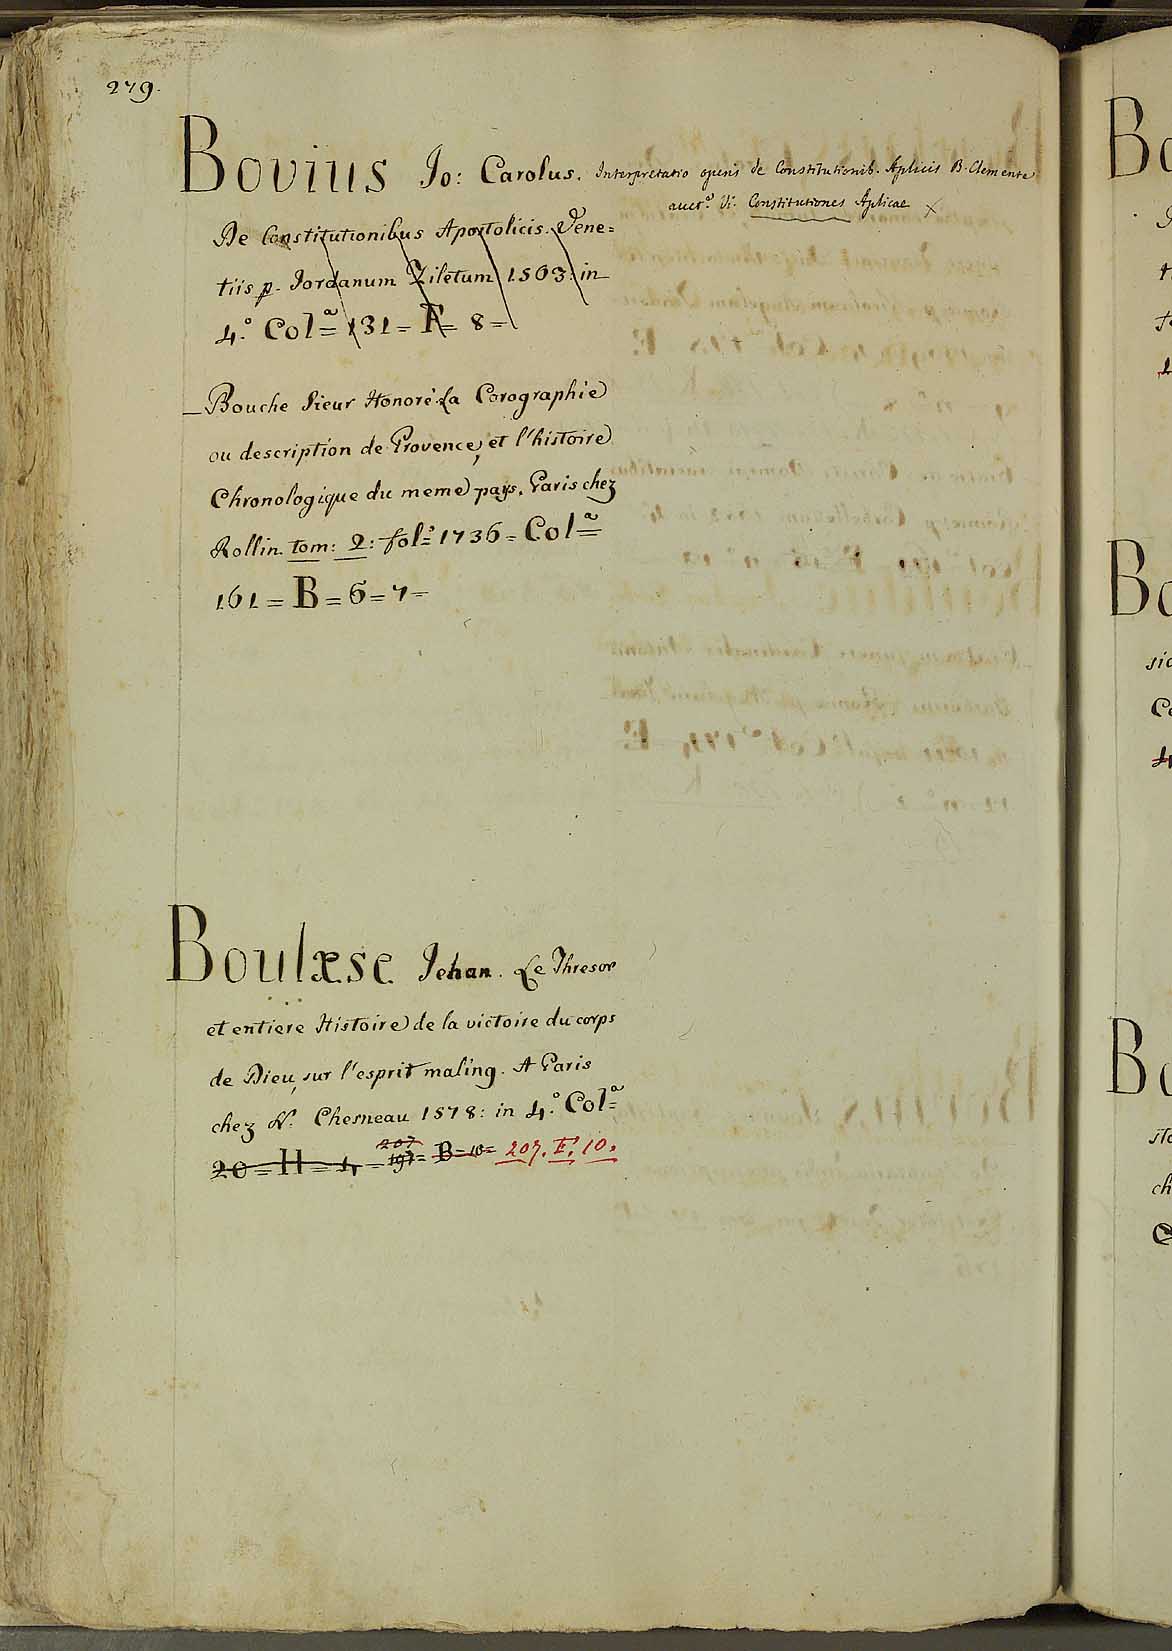 279.
Bovius Jo: Carolus. Interpretatio operis de Constitutionib. Aplicis B. Clemente
auct.e Vi. Constitutiones Aplicae x
De Constitutionibus Apostolicis. Vene=
tiis p. Jordanum Ziletum 1563: in
4.° Col.a 131 = F = 8 =
Bouche Sieur Honoré La Corographie
ou description de Provence, et l'histoire
Chronologique du meme pays. Paris chez
Rollin. tom: 2: fol.° 1736 = Col.a
161 = B = 6 = 7 =
Boulæse Jehan. Le Thresor
et entiere Histoire de la victoire du corps
de Dieu, sur l'esprit maling. A Paris
chez N. Chesneau 1578: in 4.° Col.a
20 = H = 4 = 197 = B = 10 = 207. F. 10.
207
Bo
Bo
sio
Bo
ch